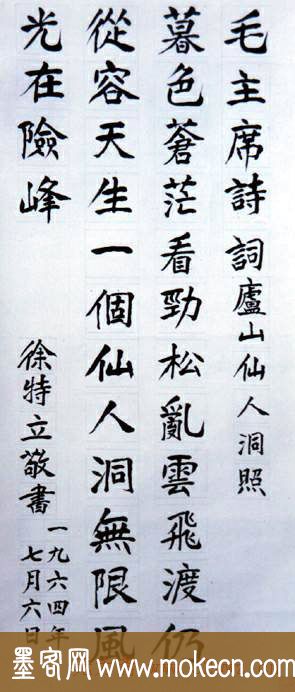 毛主席詩詞廬山仙人洞照
暮色蒼茫看勁松亂雲飛渡仍
從容天生一個仙人洞無限風
光在險峰
徐特立敬書
一九六四年
七月六日
墨客网 www.mokecn.com